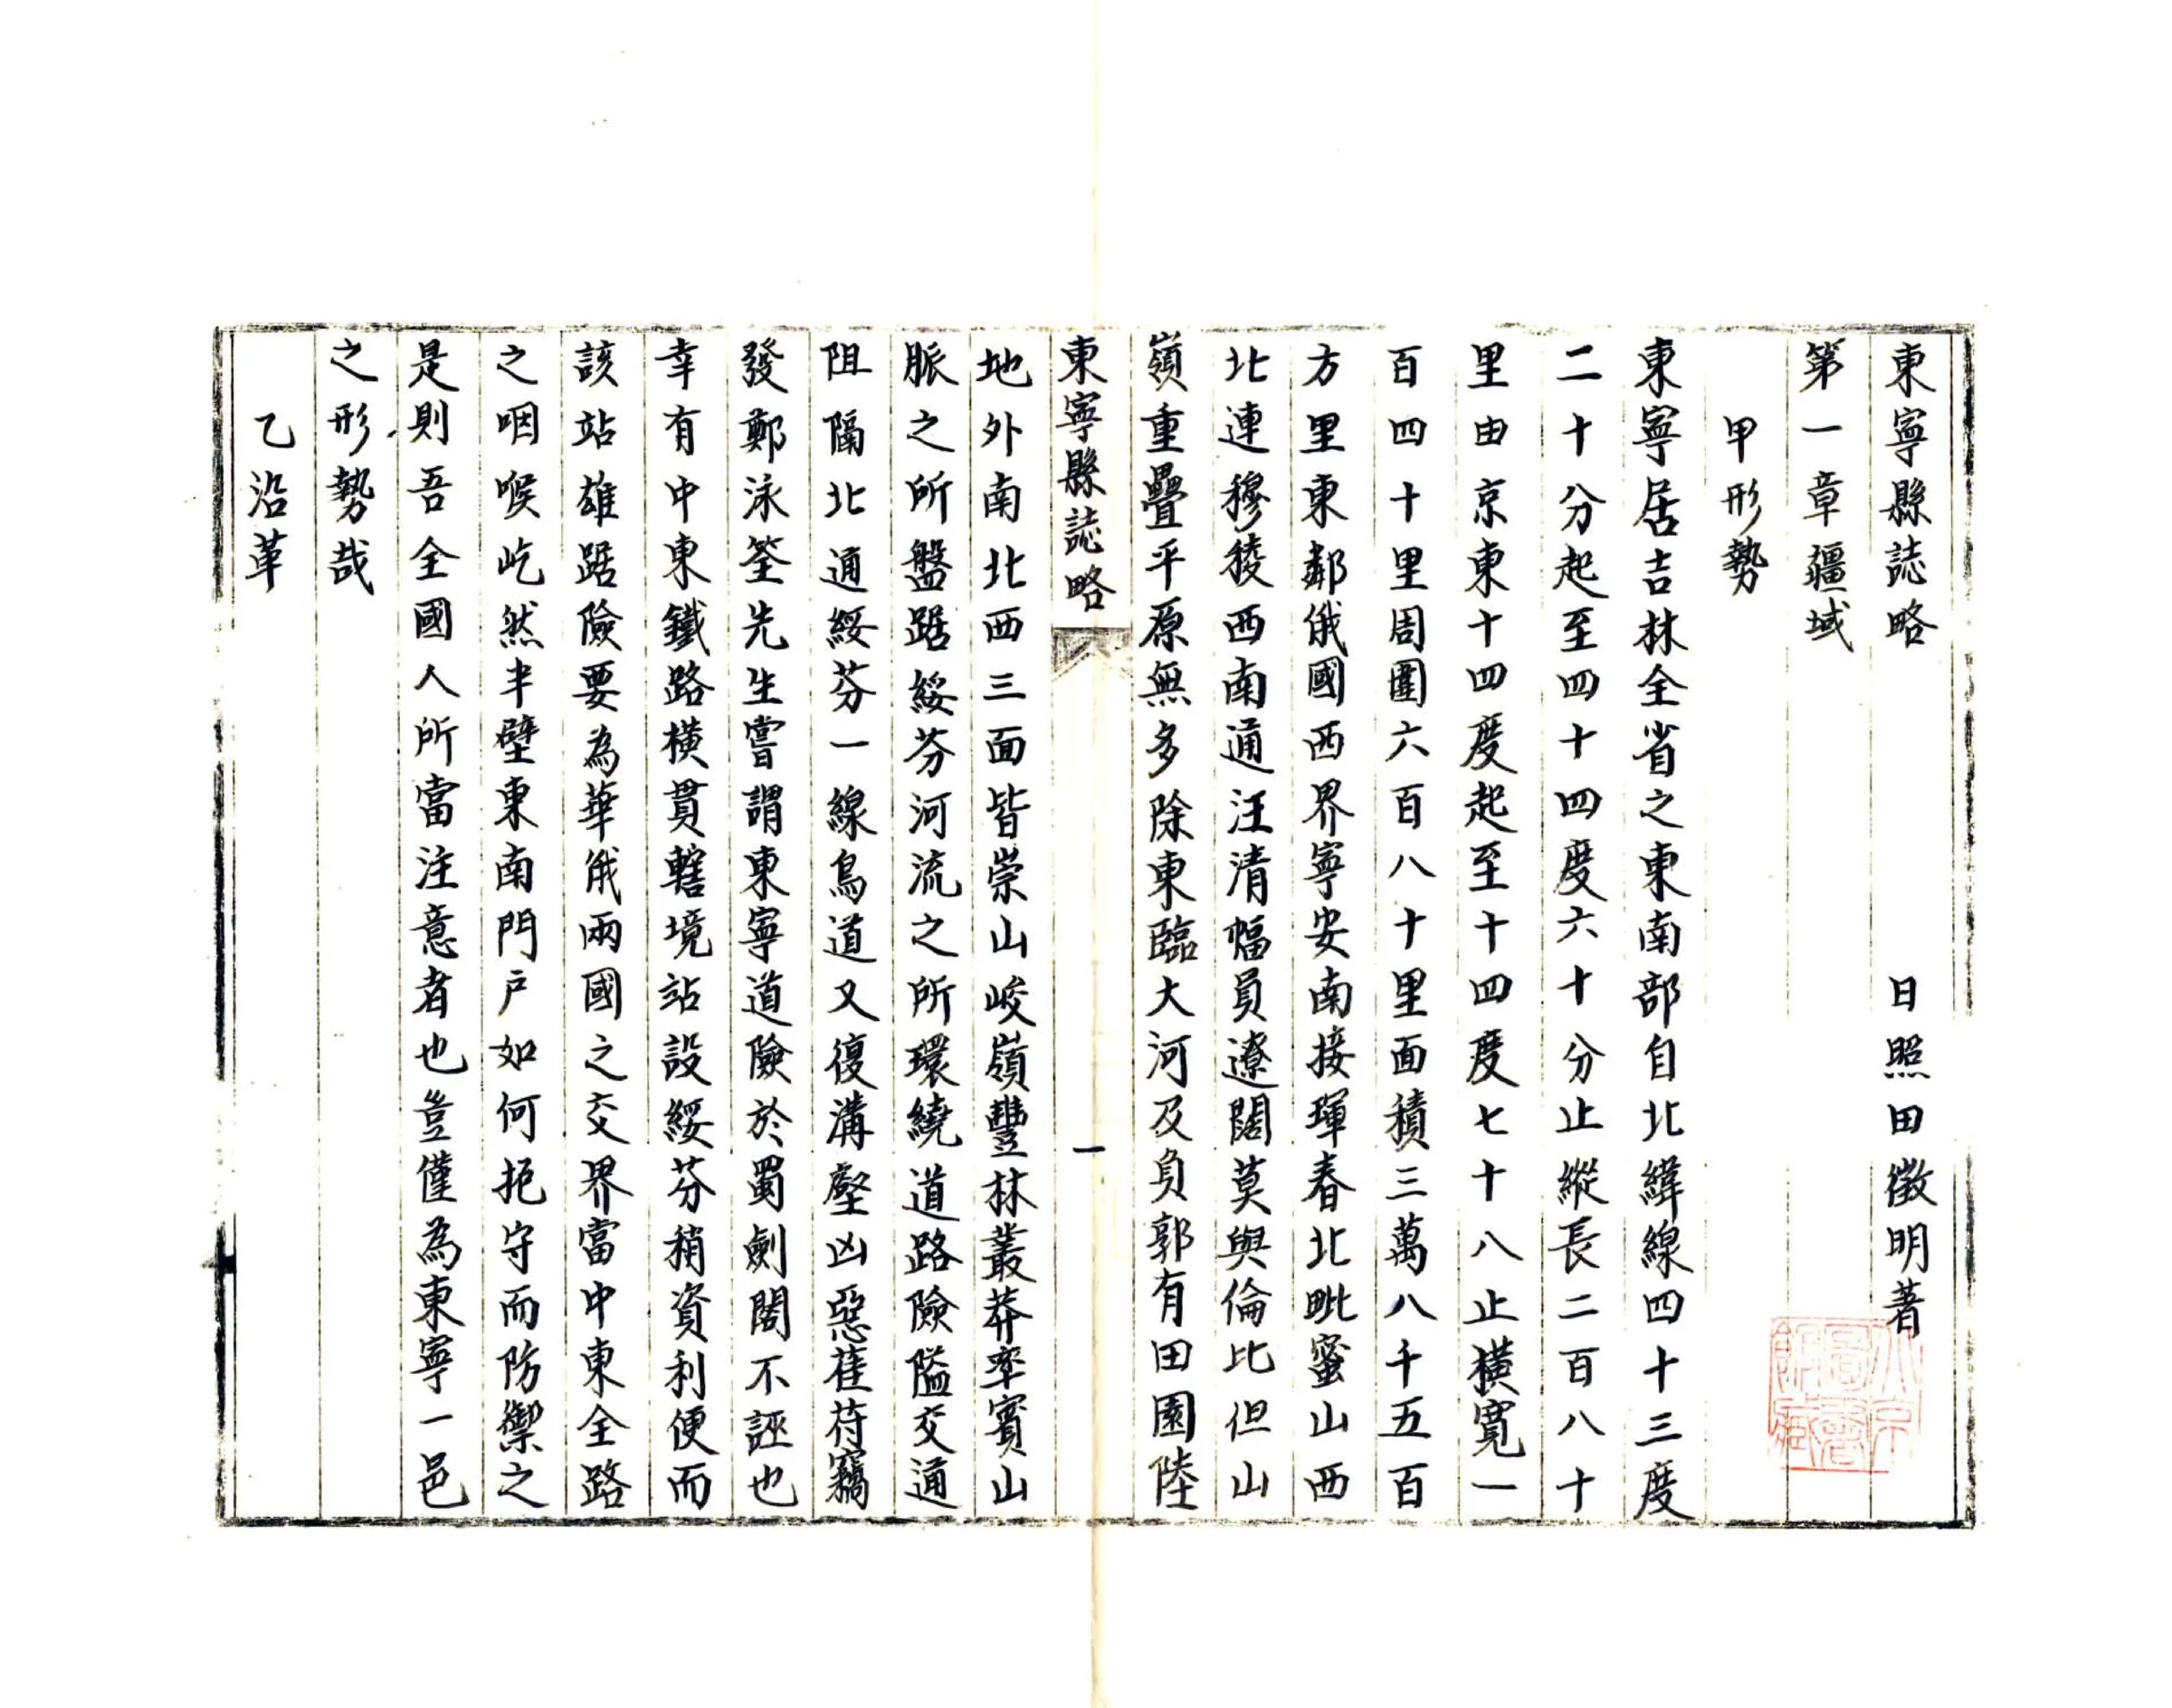 東寧縣誌略 日照田徵明著
第一章疆域
甲形勢
東寧居吉林全省之東南部自北緯線四十三度
二十分起至四十四度六十分止縱長二百八十
里由京東十四度起至十四度七十八止橫寬一
百四十里周圍六百八十里面積三萬八千五百
方里東鄰俄國西界寧安南接琿春北毗蜜山西
北連穆稜西南通汪清幅員遼闊莫與倫比但山
嶺重疊平原無多除東臨大河及負郭有田園陸
東寧縣誌略 一
地外南北西三面皆崇山峻嶺豐林叢莽率賓山
脈之所盤踞綏芬河流之所環繞道路險隘交通
阻隔北通綏芬一線鳥道又復溝壑凶惡萑苻竊
發鄭泳筌先生嘗謂東寧道險於蜀劍閣不誣也
幸有中東鐵路橫貫轄境站設綏芬稍資利便而
該站雄踞險要為華俄兩國之交界當中東全路
之咽喉屹然半壁東南門戶如何扼守而防禦之
是則吾全國人所當注意者也豈僅為東寧一邑
之形勢哉
乙沿革